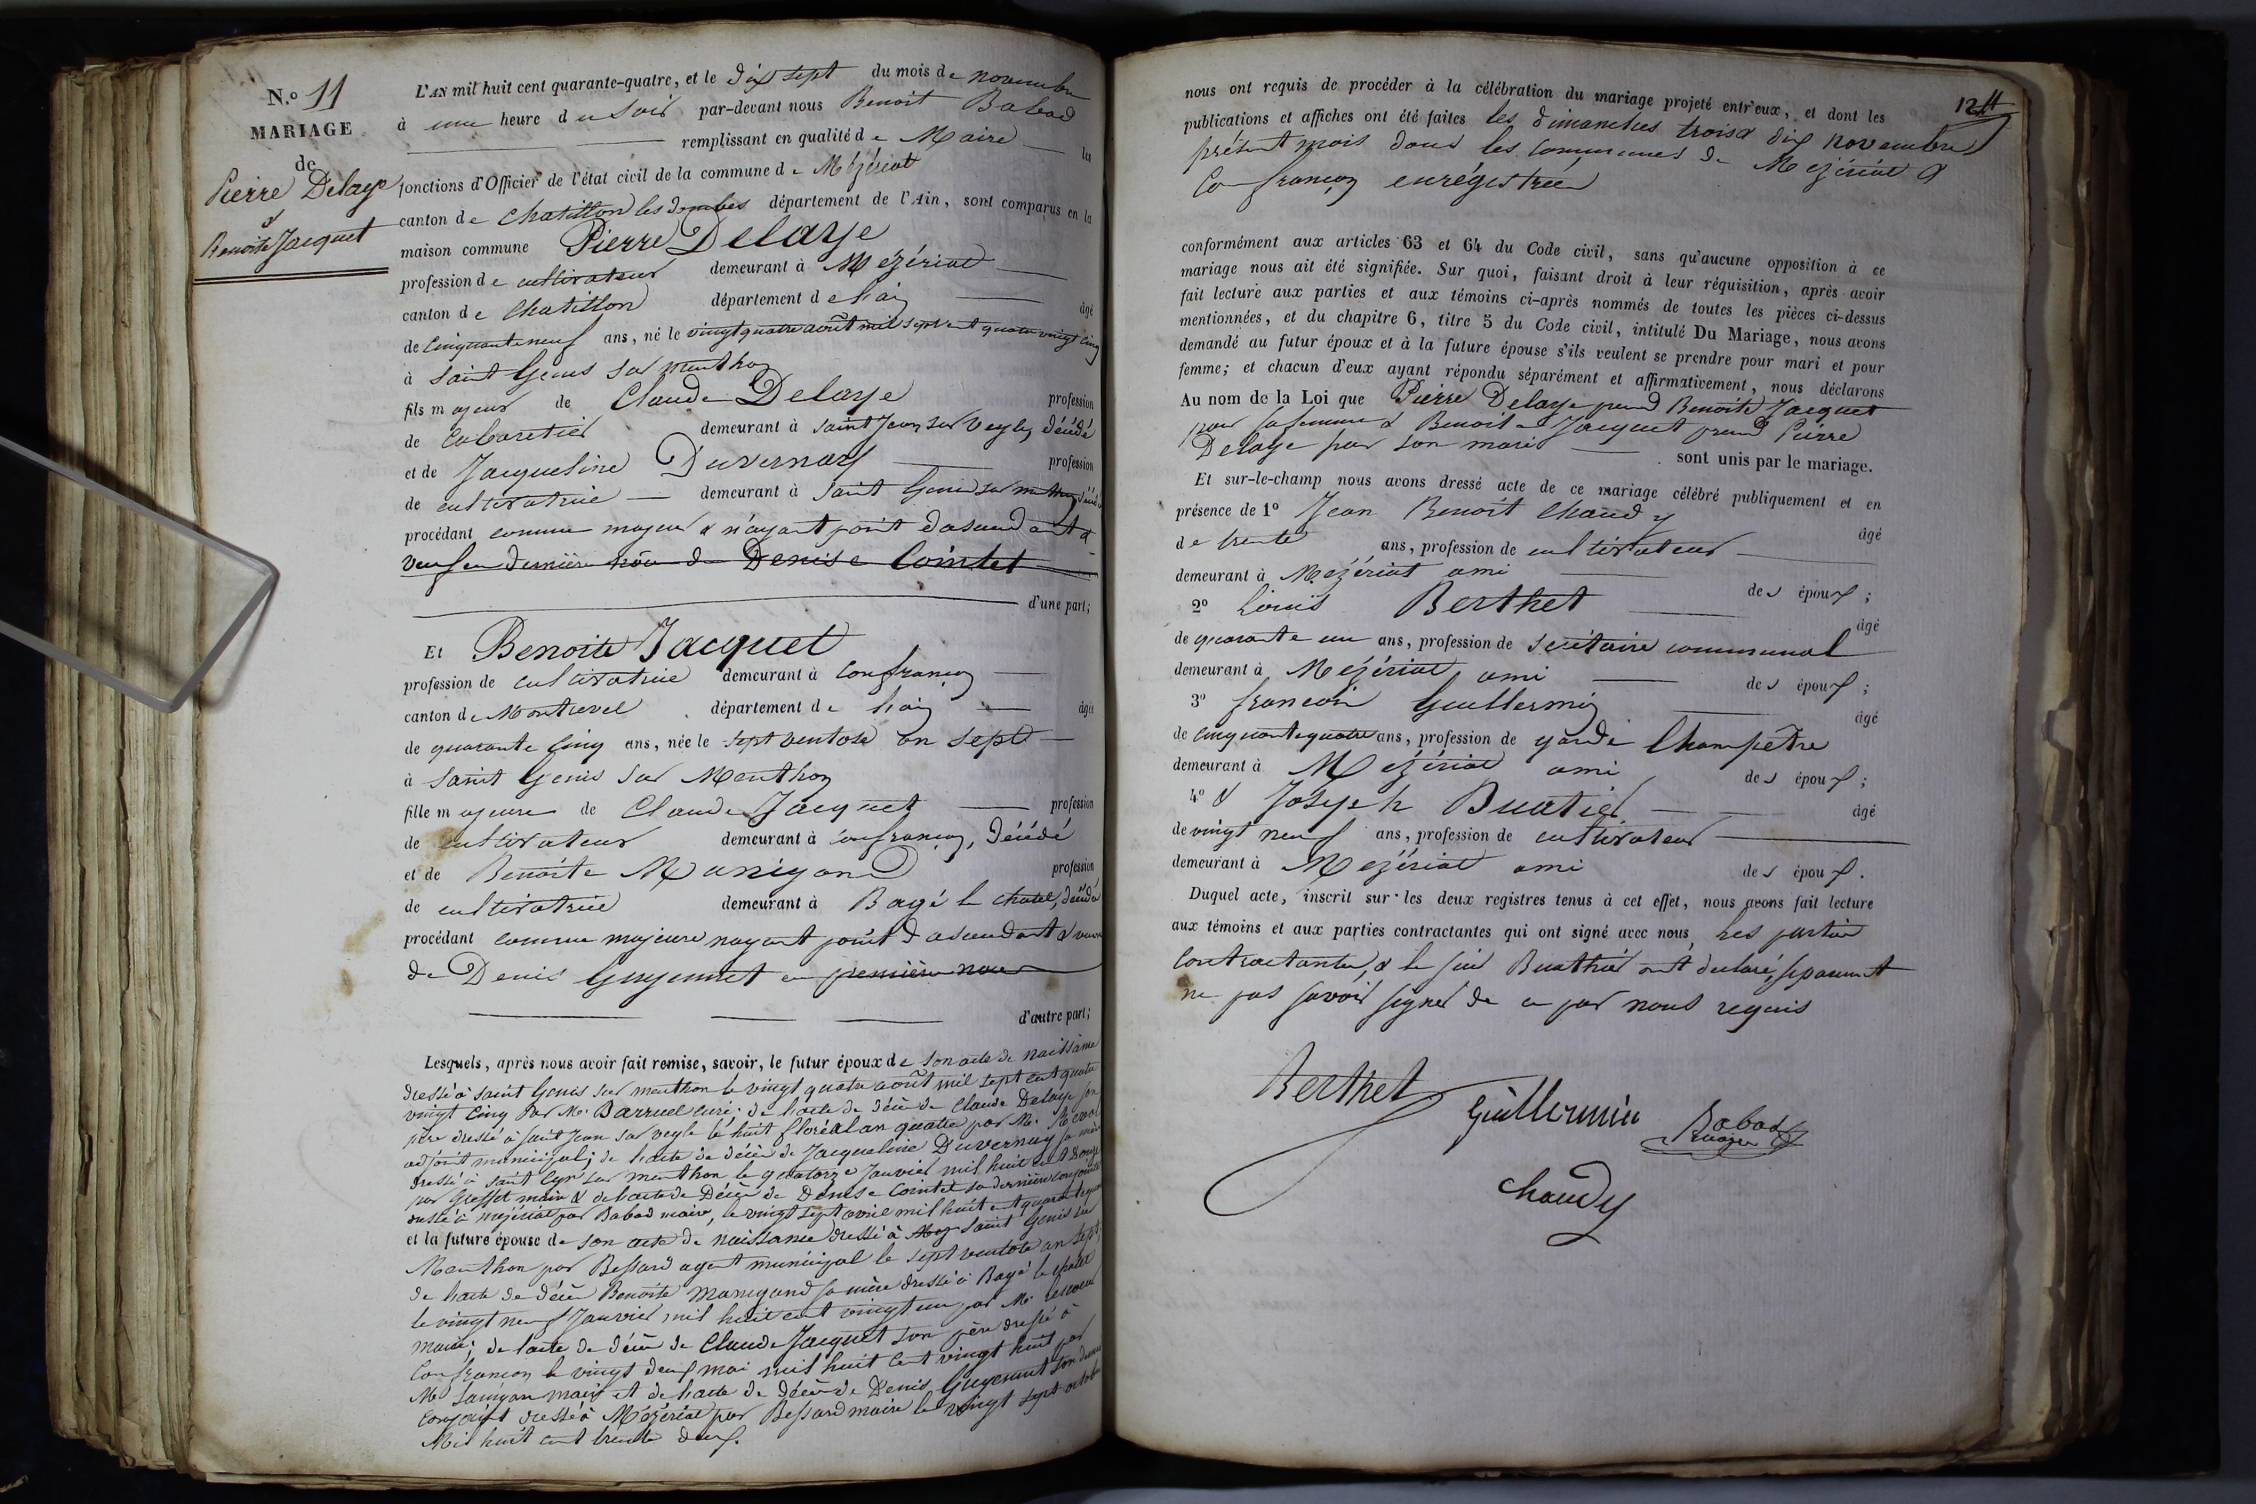 N.º 11
MARIAGE
de
Pierre Delaye
&
Benoite Jacquet
L'AN mil huit cent quarante-quatre, et le dix sept du mois de novembre
à une heure du soir par-devant nous Benoit Babad
remplissant en qualité de Maire les
fonctions d'Officier de l'état civil de la commune de Mézériat
canton de Chatillon les dombes département de l'Ain, sont comparus en la
maison commune Pierre Delaye
profession de cultivateur demeurant à Mézériat
canton de Chatillon département de l'ain âgé
de cinquante neuf ans, né le vingt quatre août mil sept cent quatre vingt cinq
à Saint Genis sur menthon
fils majeur de Claude Delaye profession
de Cabaretier demeurant à Saint Jean sur Veyle, décédé
et de Jacqueline Duvernay profession
de cultivatrice demeurant à Saint Genis sur menthon décédée
procédant comme majeur & n'ayant point d'ascendant &
veuf en dernière nôce de Denise Cointet
d'une part;
Et Benoite Jacquet
profession de cultivatrice demeurant à Confrançon
canton de Montrevel département de l'ain âgée
de quarante cinq ans, née le sept ventose an sept
à Saint Genis sur Menthon
fille majeure de Claude Jacquet profession
de cultivateur demeurant à Confrançon, décédé
et de Benoite Manigand profession
de cultivatrice demeurant à Bagé le chatel, décédée
procédant comme majeure nayant point d'ascendant & veuve
de Denis Guyennet en première noce
d'autre part;
Lesquels, après nous avoir fait remise, savoir, le futur époux de son acte de naissance
dressé à saint Genis sur menthon le vingt quatre août mil sept cent quatre
vingt cinq par Mr. Barruel curé; de l'acte de décès de Claude Delaye son
père dressé à saint Jean sur veyle le huit floréal an quatre par Mr.
adjoint municipal; de l'acte de décès de Jacqueline Duvernay sa mère
dressé à saint Cyr sur menthon le quatorze Janvier mil huit cent douze
par Greffet maire & de l'acte de Décès de Denise Cointet sa dernière conjointe
dressé à mézériat par Babad maire, le vingt sept avril mil huit cent quarante quatre
et la future épouse de son acte de naissance dressé à Saint Genis sur
Menthon par Bessard agent municipal le sept ventose an sept,
de l'acte de décès Benoite Manigand sa mère dressé à Bagé le chatel
le vingt neuf Janvier mil huit cent vingt un par Mr.
maire; de l'acte de décès de Claude Jacquet son père dressé à
Confrançon le vingt deux mai mil huit cent vingt huit par
Mr maire et de l'acte de décès de Denis Guyennet son dernier
conjoint dressé à Mézériat par Bessard maire le vingt sept octobre
Mil huit cent trente deux.
124
nous ont requis de procéder à la célébration du mariage projeté entr'eux, et dont les
publications et affiches ont été faites les dimanches trois & dix novembre
présent mois dans les communes de Mézériat &
Confrançon enrégistrées
conformément aux articles 63 et 64 du Code civil, sans qu'aucune opposition à ce
mariage nous ait été signifiée. Sur quoi, faisant droit à leur réquisition, après avoir
fait lecture aux parties et aux témoins ci-après nommés de toutes les pièces ci-dessus
mentionnées, et du chapitre 6, titre 5 du Code civil, intitulé Du Mariage, nous avons
demandé au futur époux et à la future épouse s'ils veulent se prendre pour mari et pour
femme; et chacun d'eux ayant répondu séparément et affirmativement, nous déclarons
Au nom de la Loi que Pierre Delaye prend Benoite Jacquet
pour sa femme & Benoite Jacquet prend Pierre
Delaye pour son mari sont unis par le mariage.
Et sur-le-champ nous avons dressé acte de ce mariage célébré publiquement et en
présence de 1º Jean Benoit Chaudy âgé
de trente ans, profession de cultivateur
demeurant à Mézériat ami des époux;
2º Louis Berthet âgé
de quarante un ans, profession de secrétaire communal
demeurant à Mézériat ami des époux;
3º françois Guillermin âgé
de cinquante quatre ans, profession de garde Champêtre
demeurant à Mézériat ami des époux;
4º & Joseph Buatier âgé
de vingt neuf ans, profession de cultivateur
demeurant à Mézériat ami des époux.
Duquel acte, inscrit sur les deux registres tenus à cet effet, nous avons fait lecture
aux témoins et aux parties contractantes qui ont signé avec nous, Les parties
contractantes, & le sieur Buathier ont déclaré, séparément
ne pas savoir signer de ce par nous requis
Berthet
Guillermin
Babad
maire
Chaudy